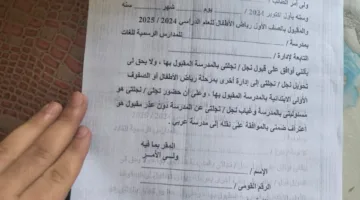 ولى أمر الطالب /
وسنه بأول أكتوبر 2024 / شهر سنه
والمقبول بالصف الأول رياض الأطفال للعام الدراسى 2024 / 2025
بمدرسة / للمدارس الرسمية للغات
التابعة لإدارة /
بأننى أوافق على قبول نجل / نجلتى بالمدرسة المقبول بها ، ولا يحق لى
تحويل نجل / نجلتى إلى إدارة أخرى بمرحلة رياض الأطفال أو الصفوف
الأولى الابتدائية بالمدرسة المقبول بها ، وعلى أن حضور نجلى / نجلتى هو
مسئوليتى بالمدرسة وغياب نجل / نجلتى عن المدرسة دون عذر مقبول هو
اعتراف ضمنى بالموافقة على نقله إلى مدرسة عربي .
المقر بما فيه
ولى الأمر
الاسم /
الرقم القومى /